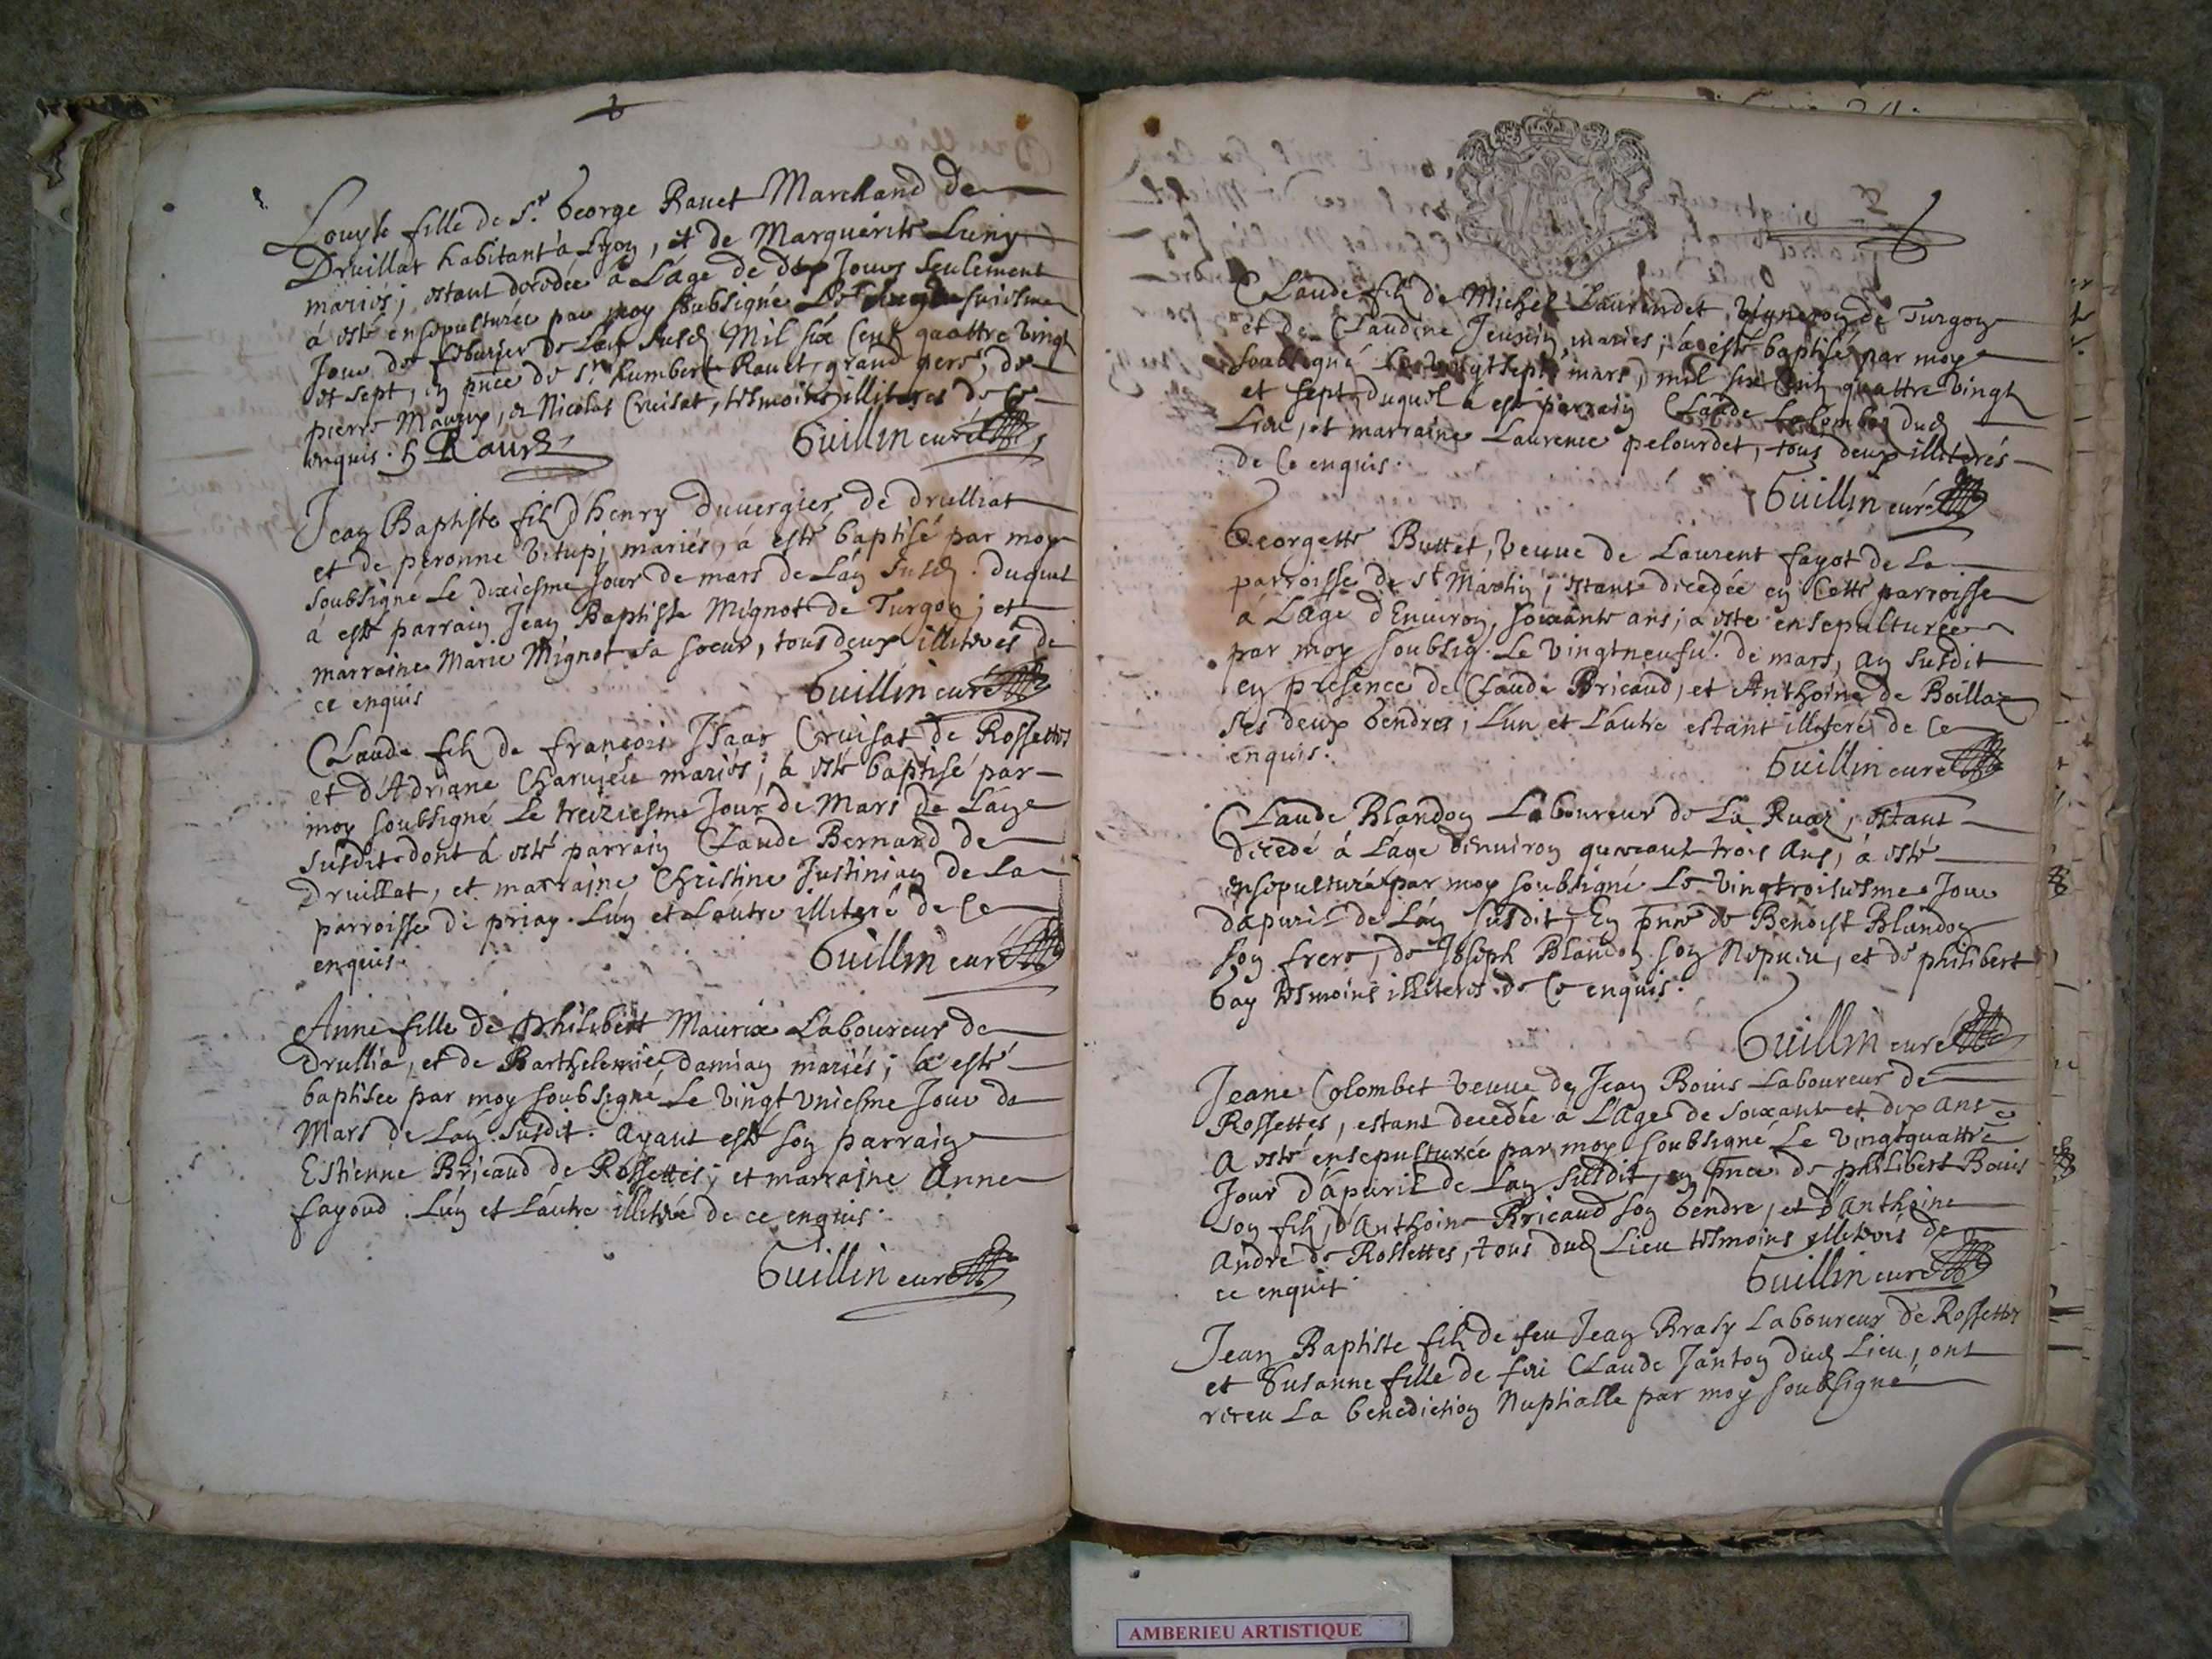 Louyse fille de Sr. George Rauet Marchand de
Druillat habitant à Lyon, et de Marguerite
mariés; estant decedée à L'age de dix Jours seulement
à esté ensepulturée par moy soubsigné Le
Jour de de L'an susd Mil six Cent quattre vingt
et sept, en pnce de Sr. humbert Rauet, grand pere, de
pierre Maurix, et Nicolas Cruisat, tesmoins illiteres de Ce
enquis. h Rauet Guillin curé
Jean Baptiste filz d'henry Duuergier, de drulliat
et de peronne Vitupj mariés, à esté baptisé par moy
soubsigné Le dixiesme Jour de mars de L'an susd. duquel
à esté parrain Jean Baptiste Mignot de Turgon; et
marraine Marie Mignot sa soeur, tous deux illiterés de
ce enquis Guillin curé
Claude filz de francois Isaac Cruisat de Rossettes
et d'Adriane Charuieu mariés; à esté baptisé par
moy soubsigné Le treiziesme Jour de Mars de L'an
susdit dont à esté parrain Claude Bernard de
Druillat, et marraine Christine Justinian de La
parroisse de priay. L'un et L'autre illiteré de Ce
enquis. Guillin curé
Anne fille de philibert Maurix Laboureur de
Drullia, et de Barthelemie damian mariés; à esté
baptisée par moy soubsigné Le vingt vniesme Jour de
Mars de L'an susdit. ayant esté son parrain
Estienne Bricaud de Rossettes; et marraine Anne
fayoud. L'un et L'autre illiteré de ce enquis.
Guillin curé
Claude filz de Michel Laurendet, Vigneron de Turgon
et de Claudine Jeuxin, mariés; à esté baptisé par moy
soubsigné Le vingt sept mars, mil six Cent quattre vingt
et sept, duquel à esté parrain Claude Colombet dud
Lieu, et marraine Laurence pelourdet, tous deux illiterés
de Ce enquis.
Guillin curé
Georgette Buttet, Veuue de Laurent fayot de La
parroisse de St Martin; estant decedée en Cette parroisse
à L'age d'Enuiron, soixante ans; à esté ensepulturée
par moy soubsig. Le vingtneufu. de mars, an susdit
en presence de Claude Bricaud, et Anthoine de Boillaz
Ses deux Gendres, L'un et L'autre estant illiteré de Ce
enquis. Guillin curé
Claude Blandon Laboureur de La Ruaz, estant
decedé à L'age d'enuiron quarante trois Ans, à esté
ensepulturé par moy soubsigné Le vingtroisiesme Jour
d'apuril de L'an susdit, En pnce de Benoist Blandon
son frere, de Joseph Blandon son Nepueu, et de philibert
Gay tesmoins illiteres de Ce enquis.
Guillin curé
Jeane Colombet veuue de Jean Bouis Laboureur de
Rossettes, estant decedée à L'Age de soixante et dix ans
A esté ensepulturée par moy soubsigné Le vingtquattre
Jour d'apuril de L'an susdit, en pnce de philibert Bouis
son filz, d'Anthoine Bricaud son Gendre, et d'Anthoine
André de Rossettes, tous dud Lieu tesmoins illiterés de
ce enquis Guillin curé
Jean Baptiste filz de feu Jean Brasy Laboureur de Rossettes
et Susanne fille de feu Claude Janton dud Lieu, ont
receu La benediction Nuptialle par moy soubsigné
AMBERIEU ARTISTIQUE